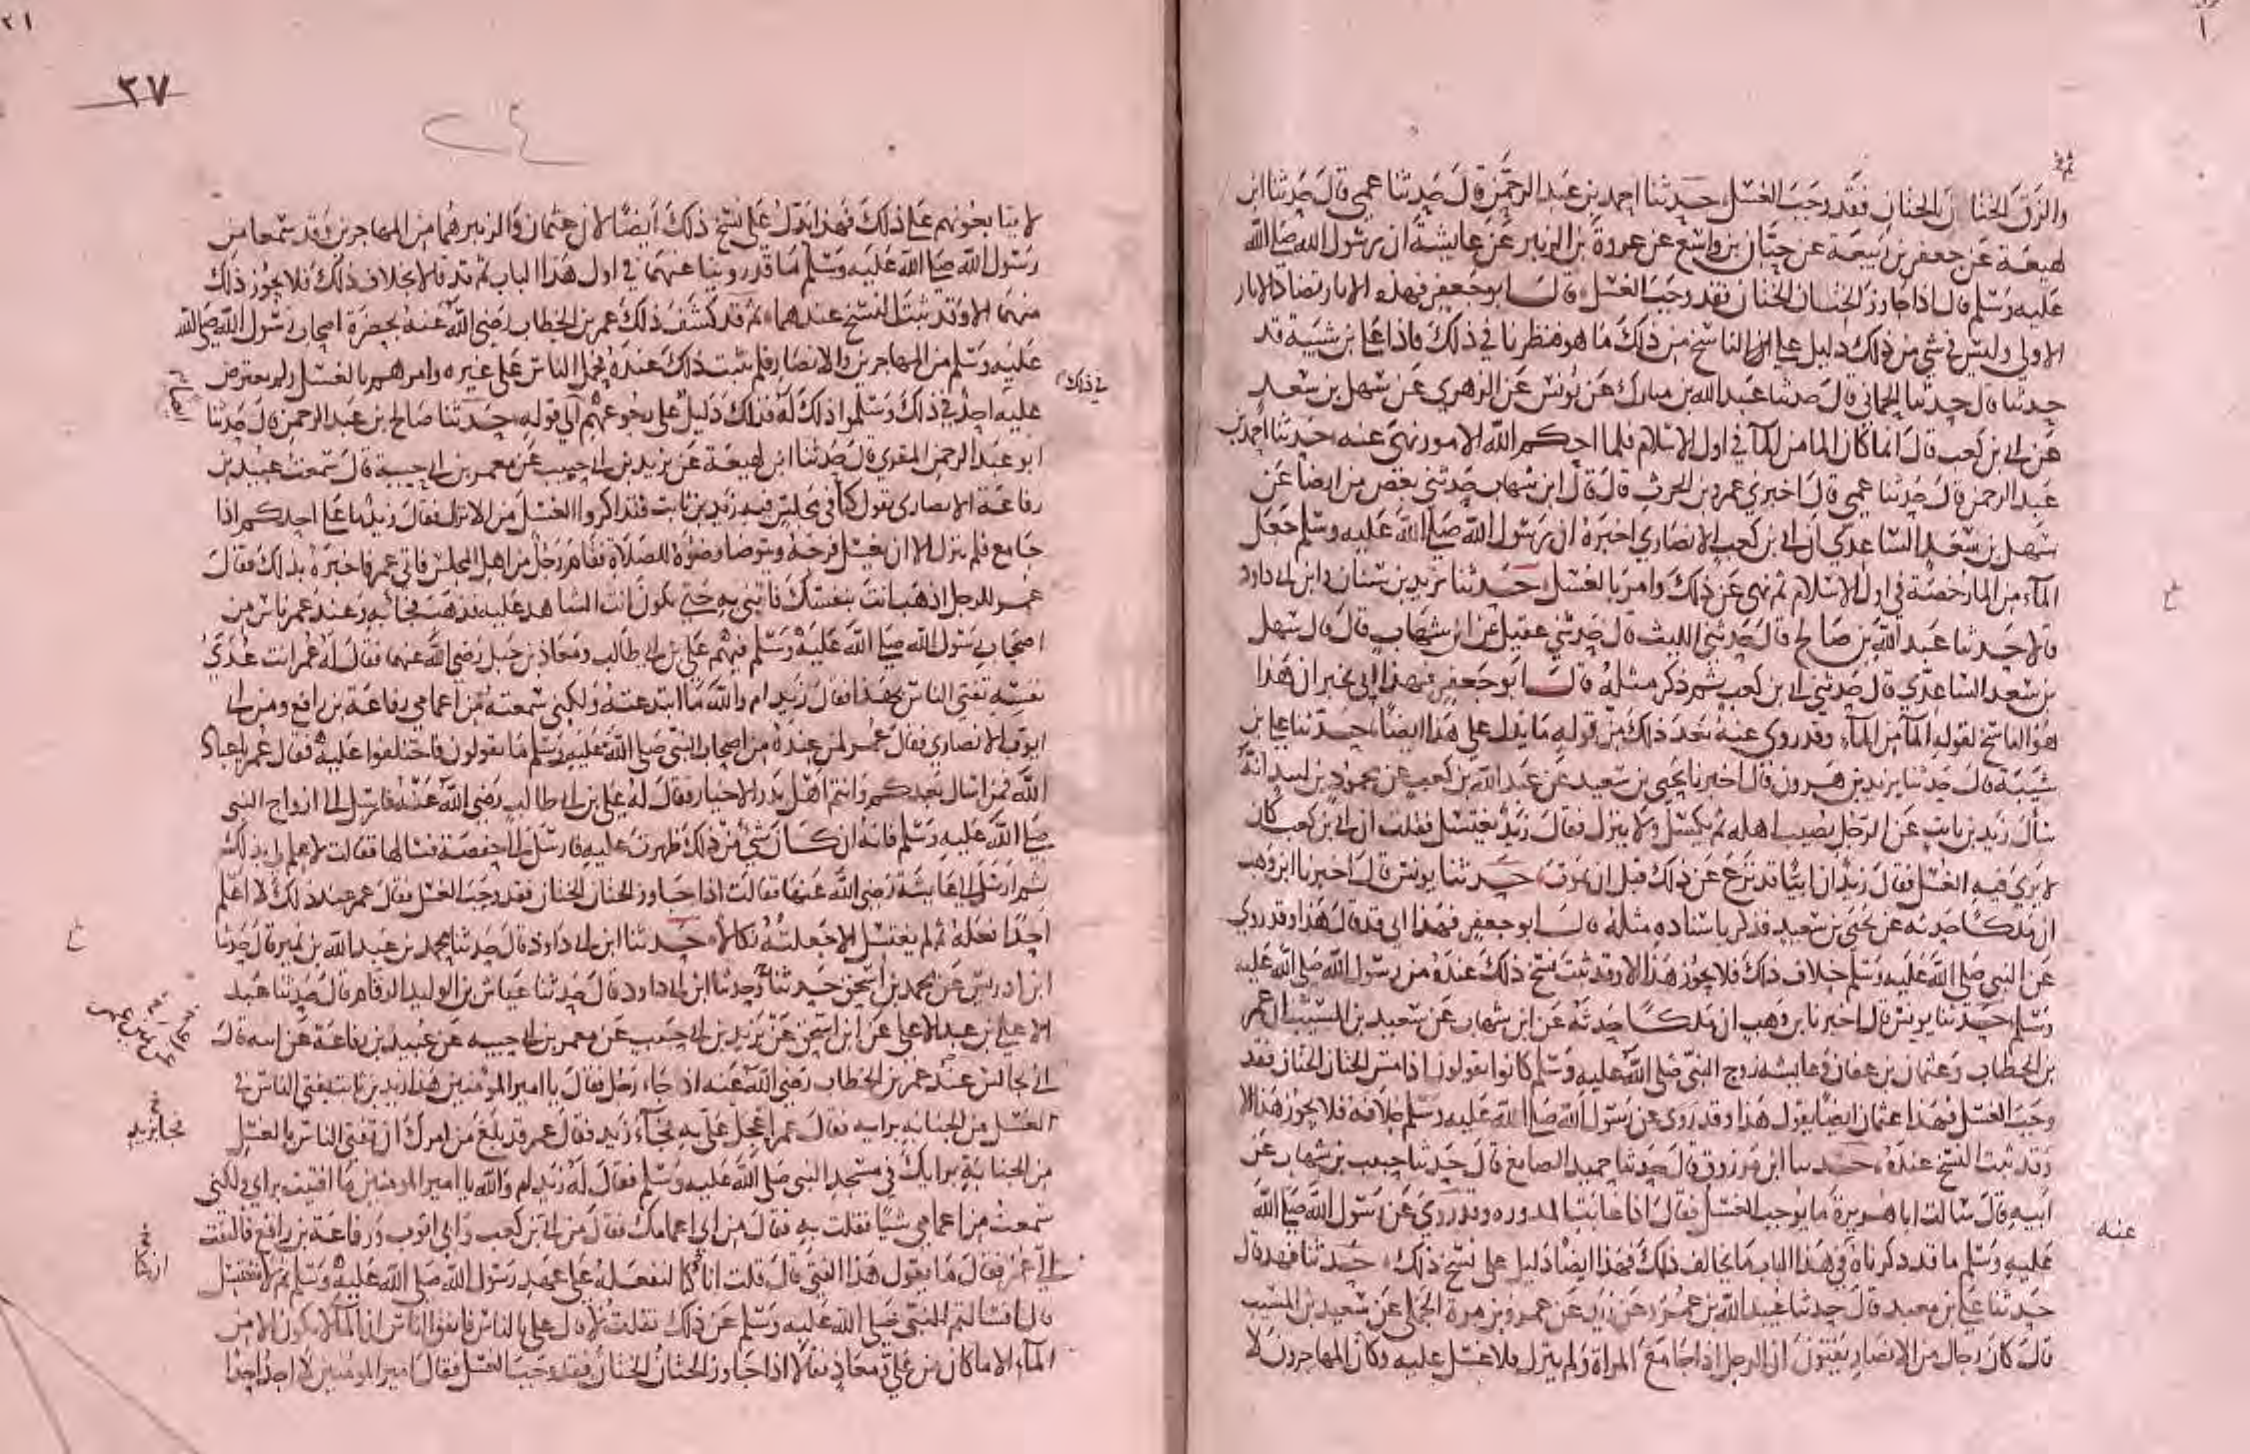 والزق الختان الختان فقد وجب الغسل حدثنا احمد بن عبد الرحمن قال حدثنا عمي قال حدثنا ابن
لهيعة عن جعفر بن ربيعة عن حبان بن واسع عن عروة بن الزبير عن عايشة ان رسول الله صلى الله
عليه وسلم قال اذا جاوز الختان الختان فقد وجب الغسل قال ابو جعفر فهذه الاثار تضاد الاثار
الاول وليس في شي من ذلك دليل على الناسخ من ذلك ما هو فنظرنا في ذلك فاذا علي بن شيبة قد
حدثنا قال حدثنا الحماني قال حدثنا عبد الله بن مبارك عن يونس عن الزهري عن سهل بن سعد
عن ابي بن كعب قال انما كان الما من الما في اول الاسلام فلما احكم الله الامور نهى عنه حدثنا احمد بن
عبد الرحمن قال حدثنا عمي قال اخبرني عمرو بن الحرث قال قال ابن شهاب حدثني بعض من ارضا عن
سهل بن سعد الساعدي ان ابي بن كعب الانصاري اخبره ان رسول الله صلى الله عليه وسلم جعل
الماء من الما رخصة في اول الاسلام ثم نهى عن ذلك وامر بالغسل حدثنا يزيد بن سنان وابن ابي داود
قالا حدثنا عبد الله بن صالح قال حدثني الليث قال حدثني عقيل عن ابن شهاب قال قال سهل
بن سعد الساعدي قال حدثني ابي بن كعب ثم ذكر مثله قال ابو جعفر فهذا ابي يخبر ان هذا
هو الناسخ لقوله الما من الماء وقد روي عنه بعد ذلك من قوله ما يدل على هذا ايضا حدثنا علي بن
شيبة قال حدثنا يزيد بن هرون قال اخبرنا يحيى بن سعيد عن عبد الله بن كعب عن محمود بن لبيد انه
سال زيد بن ثابت عن الرجل يصيب اهله ثم يكسل ولا ينزل فقال زيد يغتسل فقلت ان ابي بن كعب كان
لا يرى فيه الغسل فقال زيد ان ابيا قد نزع عن ذلك قبل ان يموت حدثنا يونس قال اخبرنا ابن وهب
ان ملكا حدثه عن يحيى بن سعيد فذكر باسناده مثله قال ابو جعفر فهذا ابي قد قال هذا وقد روى
عن النبي صلى الله عليه وسلم خلاف ذلك فلا يجوز هذا الا وقد ثبت نسخ ذلك عنده من رسول الله صلى الله عليه
وسلم حدثنا يونس قال اخبرنا بن وهب ان ملكا حدثه عن ابن شهاب عن سعيد بن المسيب ان عمر
بن الخطاب وعثمان بن عفان وعايشة زوج النبي صلى الله عليه وسلم كانوا يقولون اذا مس الختان الختان فقد
وجب الغسل فهذا عثمان ايضا يقول هذا وقد روى عن رسول الله صلى الله عليه وسلم خلافه فلا يجوز هذا الا
وقد ثبت النسخ عنده حدثنا ابن مرزوق قال حدثنا حميد الصايغ قال حدثنا حبيب بن شهاب عن
ابيه قال سالت ابا هريرة ما يوجب الغسل فقال اذا غابت المدوره وقد روي عن رسول الله صلى الله
عنه
عليه وسلم ما قد ذكرناه في هذا الباب ما يخالف ذلك فهذا ايضا دليل على نسخ ذلك حدثنا فهد قال
حدثنا علي بن معبد قال حدثنا عبيد الله بن عمرو عن زيد عن عمرو بن مرة الجملي عن سعيد بن المسيب
قال كان رجال من الانصار يفتون ان الرجل اذا جامع المراة ولم ينزل فلا غسل عليه وكان المهاجرون لا
٣٧
لا يتابعونهم على ذلك فهذا يدل على نسخ ذلك ايضا لان عثمان والزبير هما من المهاجرين وقد سمعا من
رسول الله صلى الله عليه وسلم ما قد روينا عنهما في اول هذا الباب ثم قد قالا بخلاف ذلك فلا يجوز ذلك
منهما الا وقد ثبت النسخ عندهما ثم قد كشف ذلك عمر بن الخطاب رضي الله عنه بحضرة اصحاب رسول الله صلى الله
عليه وسلم من المهاجرين والانصار فلم يثبت ذلك عنده فحمل الناس على غيره وامرهم بالغسل ولم يعترض
في ذلك
عليه احد في ذلك وسلموا ذلك له فذلك دليل على رجوعهم الى قوله حدثنا صالح بن عبد الرحمن قال حدثنا
ابو عبد الرحمن المقري قال حدثنا ابن لهيعة عن يزيد بن ابي حبيب عن معمر بن ابي حبيبة قال سمعت عبيد بن
رفاعة الانصاري يقول كنا في مجلس فيه زيد بن ثابت فتذاكروا الغسل من الانزال فقال زيد ما على احدكم اذا
جامع فلم ينزل الا ان يغسل فرجه ويتوضا وضوه للصلاة فقام رجل من اهل المجلس فاتى عمر فاخبره بذلك فقال
عمر للرجل اذهب انت بنفسك فاتني به حتى يكون انت الشاهد عليه فذهب فجا به وعند عمر ناس من
اصحاب رسول الله صلى الله عليه وسلم فيهم علي بن ابي طالب ومعاذ بن جبل رضي الله عنهما فقال له عمر انت عدي
نفسه تفتي الناس بهذا فقال زيد ام والله ما ابتدعته ولكني سمعته من اعمامي رفاعة بن رافع ومن ابي
ايوب الانصاري فقال عمر لمن عنده من اصحاب النبي صلى الله عليه وسلم ما تقولون فاختلفوا عليه فقال عمر يا عباد
الله فمن اسال بعدكم وانتم اهل بدر الاخيار فقال له علي بن ابي طالب رضي الله عنه فارسل الى ازواج النبي
صلى الله عليه وسلم فانه ان كان شي من ذلك ظهرت عليه فارسل الى حفصة فسالها فقالت لا علم لي بذلك
ثم ارسل الى عايشة رضي الله عنها فقالت اذا جاوز الختان الختان فقد وجب الغسل فقال عمر عند ذلك لا اعلم
احدا فعله ثم لم يغتسل الا جعلته نكالا حدثنا ابن ابي داود قال حدثنا محمد بن عبد الله بن نمير قال حدثنا
ابن ادريس عن محمد بن اسحق ح وحدثنا ابن ابي داود قال حدثنا عياش بن الوليد الرقام قال حدثنا عبد
الاعلى بن عبد الاعلى عن ابن اسحق عن يزيد بن ابي حبيب عن معمر بن ابي حبيبه عن عبيد بن رفاعة عن ابيه قال
اني لجالس عند عمر بن الخطاب رضي الله عنه اذ جاء رجل فقال يا امير المومنين هذا زيد بن ثابت يفتي الناس في
الغسل من الجنابه برايه فقال عمر اعجل علي به فجاء زيد فقال عمر قد بلغ من امرك ان تفتي الناس بالغسل
من الجنابة برايك في مسجد النبي صلى الله عليه وسلم فقال له زيد ام والله يا امير المومنين ما افتيت براي ولكني
سمعت من اعمامي شيا فقلت به فقال من اي اعمامك فقال من ابي بن كعب وابي ايوب ورفاعة بن رافع فالتفت
الي عمر فقال ما يقول هذا الفتى قال قلت انا كنا لنفعله على عهد رسول الله صلى الله عليه وسلم ثم لا نغتسل
قال افسالتم النبي صلى الله عليه وسلم عن ذلك فقلت لا قال علي بالناس فاتفق الناس ان الما لا يكون الا من
الماء الا ما كان من علي ومعاذ فقالا اذا جاوز الختان الختان فقد وجب الغسل فقال امير المومنين لا اجد احدا